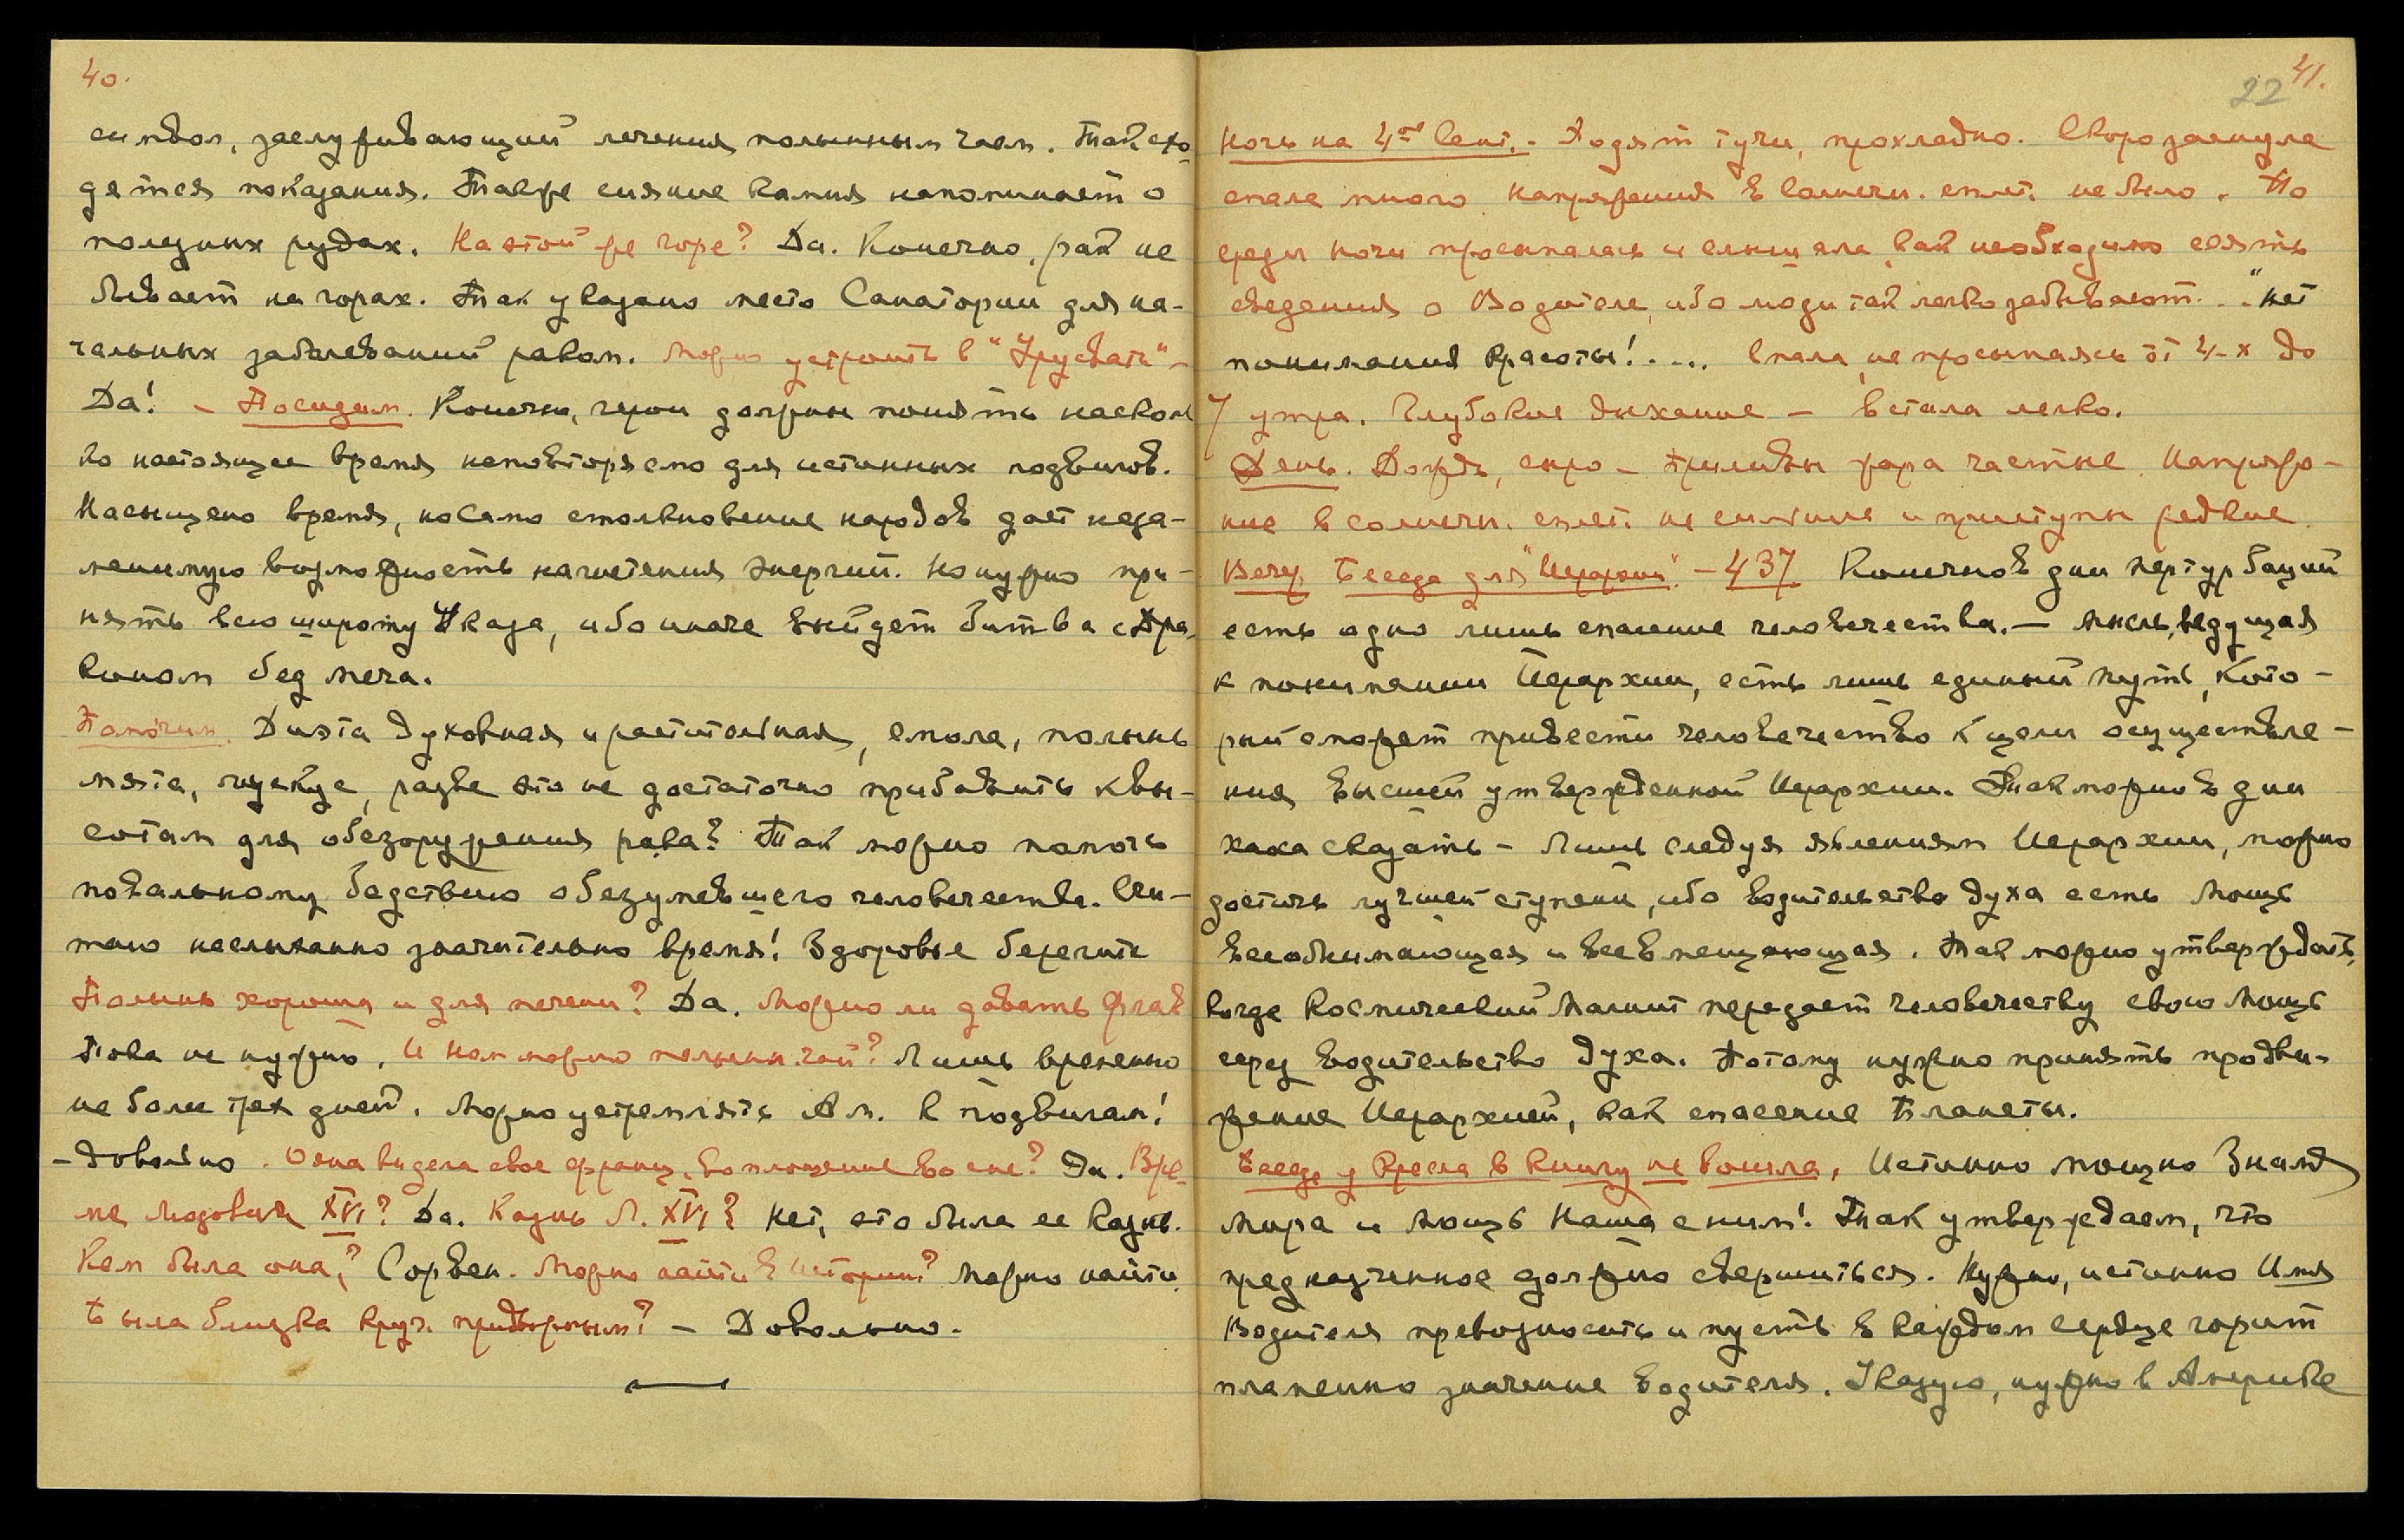 40.
симвон, заслуживающий лечения полынным чаем. Так схо-
дятся показания. Также сияние камня напоминает о
полезных рудах. На этой же горе? Да. Конечно, рак не
бывает на горах. Так указано место Санатории для на-
чальных заболеваний раком. Можно устроить в "Урусвати" –
Да! – Посидим. Конечно, герои должны понять насколь
ко настоящее время неповторяемо для истинных подвигов.
Насыщено время, но само столкновение народов дает неза-
менимую возможность нагнетения энергий. Но нужно при-
нять всю широту Указа, ибо иначе выйдет битва с Дра-
коном без меча.
Помочим. Диэта духовная и растительная, смола, полынь
мята, мускус, разве это не достаточно прибавить к вы-
сотам для обезоружения рака? Так можно помочь
повальному бедствию обезумевшего человечества. Счи-
таю неслыханно значительно время! Здоровье берегите
Полынь хороша и для печени? Да. Можно ли давать Флав
Пока не нужно. И нам можно полынн. чай? Лишь временно
не более трех дней. Можно устремлять Ам. к подвигам!
– Довольно. Ояна видела свое франц. воплощение во сне? Да. Вре-
мя Людовика XVI? Да. Казнь Л. XVI? Нет, это была ее казнь.
Кем была она? Сорвен. Можно найти в истории? Можно найти.
Была близка круг. придворным? – Довольно.
22 41.
Ночь на 4ое Сент. – Ходят тучи, прохладно. Скоро заснула
спала много. Напряжения в солнечн. сплет. не было. По
среди ночи просыпалась и слышала, как необходимо сеять
сведения о Водителе, ибо люди так легко забывают. . "Нет
понимания Красоты! .... Спала, не просыпаясь от 4-х до
7 утра. Глубокое дыхание – встала легко.
День. Дождь, сыро – приливы жара частые. Напряже-
ние в солнечн. сплет. не сильные и приступы редкие.
Вечер. Беседа для "Иерархии". – 437 Конечно в дни пертурбаций
есть одно лишь спасение человечества. – Мысль, ведущая
к пониманию Иерархии, есть лишь единый путь, кото-
рый сможет привести человечество к цели осуществле-
ния Высшей утвержденной Иерархии. Так можно в дни
хаоса сказать – Лишь следуя явлениям Иерархии, можно
достичь лучшей ступени, ибо водительство духа есть Мощь
всеобнимающая и всевмещающая. Так можно утверждать,
когда Космический Магнит передает человечеству свою Мощь
через водительство духа. Потому нужно принять продви-
жение Иерархией, как спасение Планеты.
Беседа у Кресла в Книгу не вошла. Истинно мощно Знамя
Мира и Мощь Наша с ним! Так утверждаем, что
предназначенное должно свершиться. Нужно, истинно Имя
Водителя превозносить и пусть в каждом сердце горит
пламенно значение Водителя. Указую, нужно в Америке